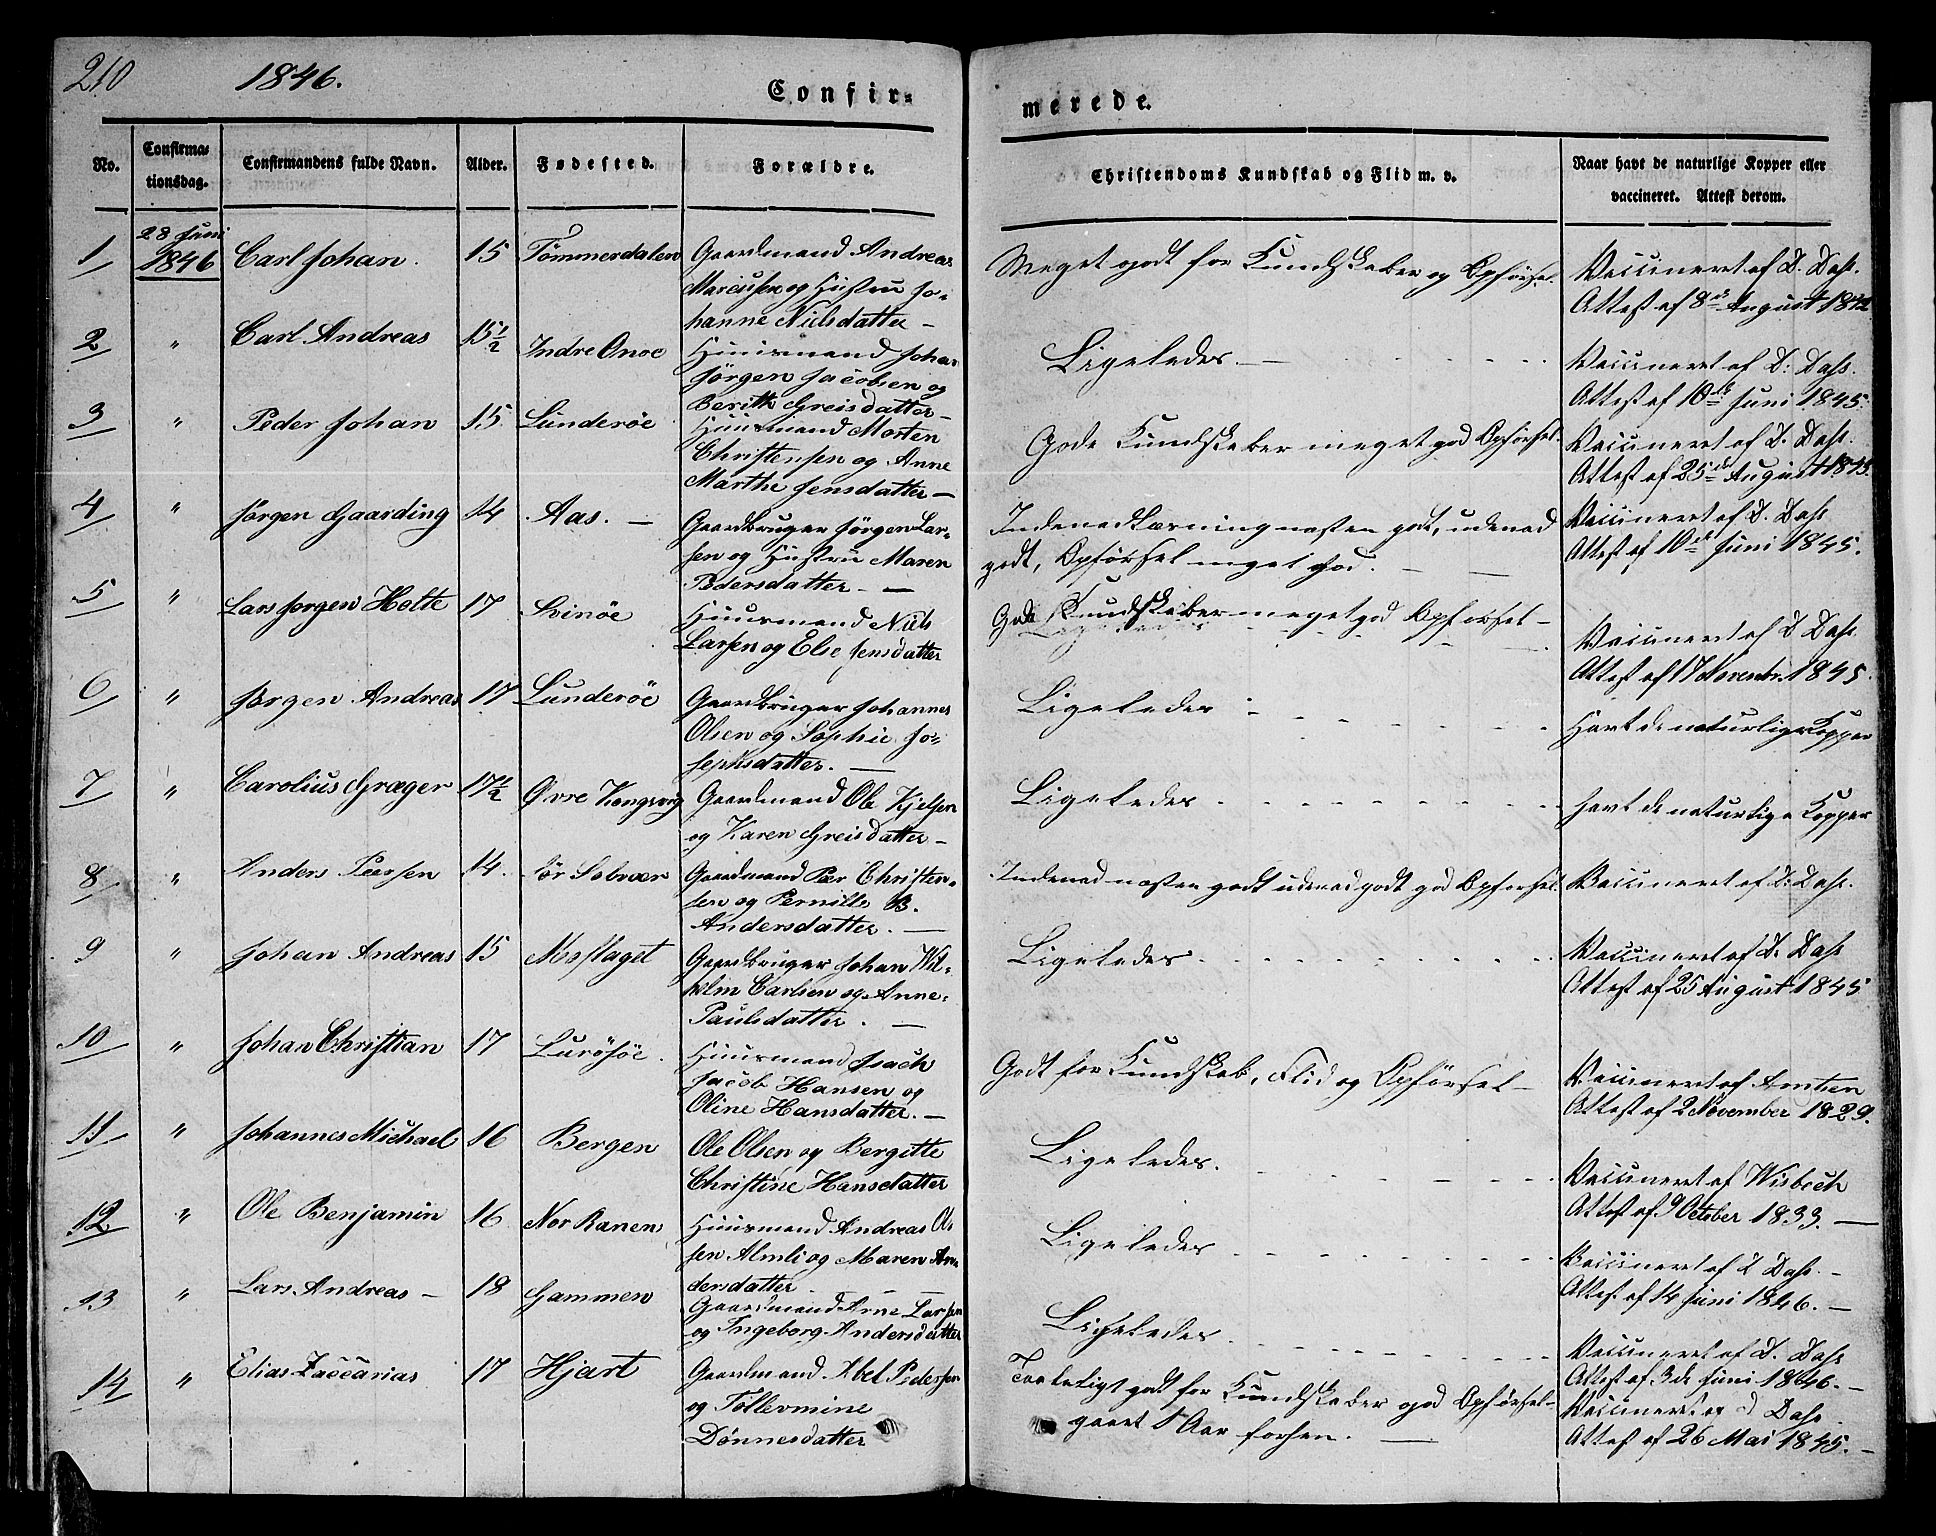 210 1846. Confir-
merede.
No. Confirma-tionsdag. Confirmandens fulde Navn. Alder. Fødested. Forældre. Christendoms Kundskab og Flid m. v. Naar havt de naturlige Kopper eller vaccineret. Attest derom.
1 28 Juni 1846 Carl Johan. 15 Tømmerdalen Gaardmand Andreas
Marcussen og Hustru Jo-
hanne Nielsdatter –
Meget godt for Kundskaber og Opførsel. Vaccineret af D. Dahl.
Attest af 8de August 1842
2 " Carl Andreas 15½ Indre Onøe Huusmand Johan
Jörgen Jacobsen og
Berith Greisdatter –
Ligeledes. – Vaccineret af D: Dahl.
Attest af 10de Juni 1845.
3 " Peder Johan 15 Lunderöe Huusmand Morten
Christensen og Anne
Marthe Jensdatter –
Gode Kundskaber meget god Opførsel. Vaccineret af D. Dahl.
Attest af 25de August 1845.
4 " Jörgen Gaarding 14 Aas. – Gaardbruger Jörgen Lar-
sen og Hustru Maren
Pedersdatter. –
Indenadlæsning næsten godt, udenad
godt, Opførsel meget god. – Vaccineret af D. Dahl
Attest af 10de Juni 1845.
5 " Lars Jörgen Holte 17 Svinöe Huusmand Niels
Larsen og Else Jensdatter
Gode Kundskaber meget god Opførsel – Vaccineret af D Dahl
Attest af 17 Novembr. 1845.
6 " Jörgen Andreas 17 Lunderöe Gaardbruger Johannes
Olsen og Sophie Jo-
sephsdatter. –
Ligeledes Havt de naturlige Kopper
7 " Carolius Græger 17½ Øvre Kongsvig Gaardmand Ole Kjelsen
og Karen Greisdatter –
Ligeledes havt de naturlige Kopper
8 " Anders Peersen 14. Gaardmand Peer Christen-
sen og Pernille B.
Andersdatter. –
Indenad næsten godt udenad godt god Opførsel. Vaccineret af D: Dahl.
9 " Johan Andreas 15 Gaardbruger Johan Wil-
helm Carlsen og Anne
Paulsdatter. –
Ligeledes Vaccineret af D. Dahl
Attest af 25 August 1845
10 " Johan Christian 17 Luröföe. Huusmand Isach
Jacob Hansen og
Oline Hansdatter. –
Godt for Kundskab, Flid og Opførsel – Vaccineret af Arntzen
Attest af 2 November 1829.
11 " Johannes Michael 16 Bergen Ole Olsen og Bergitte
Christine Hansdatter
Ligeledes. Vaccineret af Wisbech
Attest af 9 October 1833. –
12 " Ole Benjamin 16 Nor Ranen Huusmand Andreas Ol-
sen Almli og Maren An-
dersdatter
Ligeledes Vaccineret af D Dahl. –
Attest af 14 Juni 1846. –
13 " Lars Andreas – 18 Gammen Gaardmand Arne Larsen
og Ingeborg Andersdatter
Ligeledes Vaccineret af D. Dahl
Attest af 3de Juni 1846. –
14 " Elias Zaccarias 17 Hjart Gaardmand Abel Pedersen
og Tollevmine
Dønnesdatter
Taaleligt godt for Kundskaber god Opførsel –
gaaet 1 Aar forhen. – Vaccineret af D Dahl
Attest af 26 Mai 1845. –